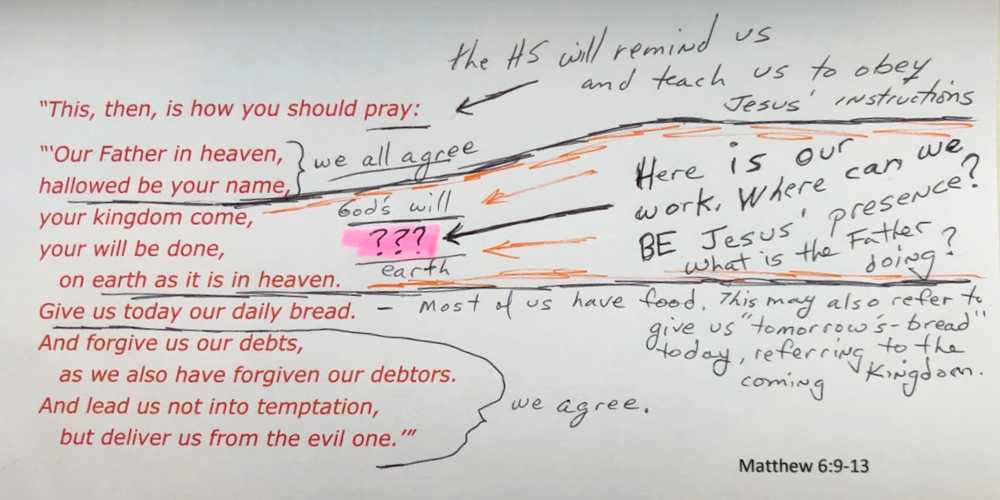 the HS will remind us
and teach us to obey
Jesus' instructions
"This, then, is how you should pray:
"'Our Father in heaven,
hallowed be your name,
we all agree
your kingdom come,
your will be done,
on earth as it is in heaven.
God's will
???
earth
Here is our
work. Where can we
BE Jesus' presence?
what is the Father
doing?
Give us today our daily bread.
- Most of us have food. This may also refer to
give us "tomorrow's-bread"
today, referring to the
coming Kingdom.
And forgive us our debts,
as we also have forgiven our debtors.
And lead us not into temptation,
but deliver us from the evil one.'"
we agree.
Matthew 6:9-13